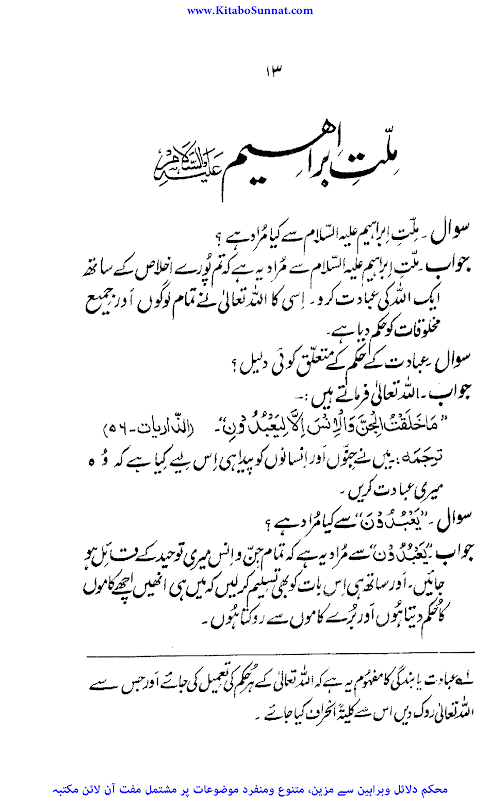 www.KitaboSunnat.com
۱۳
ملّتِ ابراہیم علیہ السلام
سوال ۔ ملّتِ ابراہیم علیہ السّلام سے کیا مُراد ہے ؟
جواب ۔ ملّتِ ابراہیم علیہ السّلام سے مُراد یہ ہے کہ تم پُورے اخلاص کے ساتھ
ایک اللہ کی عبادت کرو ۔ اِسی کا اللہ تعالیٰ نے تمام لوگوں اَور جمیع
مخلوقات کو حکم دیا ہے۔
سوال ۔ عبادت کے حکم کے متعلّق کوئی دلیل ؟
جواب ۔ اللہ تعالیٰ فرماتے ہیں :۔
”مَا خَلَقْتُ الْجِنَّ وَالْاِنْسَ اِلَّا لِيَعْبُدُوْنِ“۔ (الذّاریات-۵۶)
ترجمہ : میں نے جنّوں اَور اِنسانوں کو پیدا ہی اِس لیے کِیا ہے کہ وُہ
میری عبادت کریں ۔
سوال ۔ ”يَعْبُدُوْنَ“ سے کیا مُراد ہے ؟
جواب ۔ ”يَعْبُدُوْنَ“ سے مُراد یہ ہے کہ تمام جِنّ و اِنس میری توحید کے قائل ہو
جائیں ۔ اَور ساتھ ہی اِس بات کو بھی تسلیم کر لیں کہ میں ہی انھیں اچھے کاموں
کا حُکم دیتا ہُوں اَور بُرے کاموں سے روکتا ہُوں ۔
۱؎ عبادت یا بندگی کا مفہُوم یہ ہے کہ اللہ تعالیٰ کے ہر حُکم کی تعمیل کی جائے اَور جس سے
اللہ تعالیٰ روک دیں اس سے کلیتہً انحراف کیا جائے ۔
محکم دلائل وبراہین سے مزین، متنوع ومنفرد موضوعات پر مشتمل مفت آن لائن مکتبہ